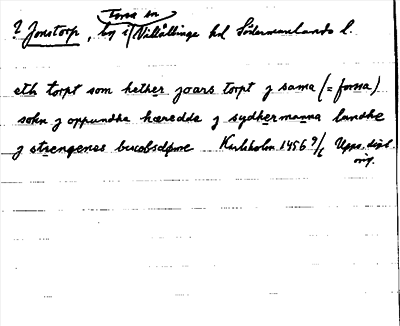 Forsa sn
? Jonstorp, by i Villåttinge hd Södermanlands l.
eth torpt som hether joars torpt j sama (= forssa)
sokn j oppundha hæredde j sydhermanna landhe
j strengenes bucobsdøme Karlsholm 1456 9/6 Upps. dipl.
orig.